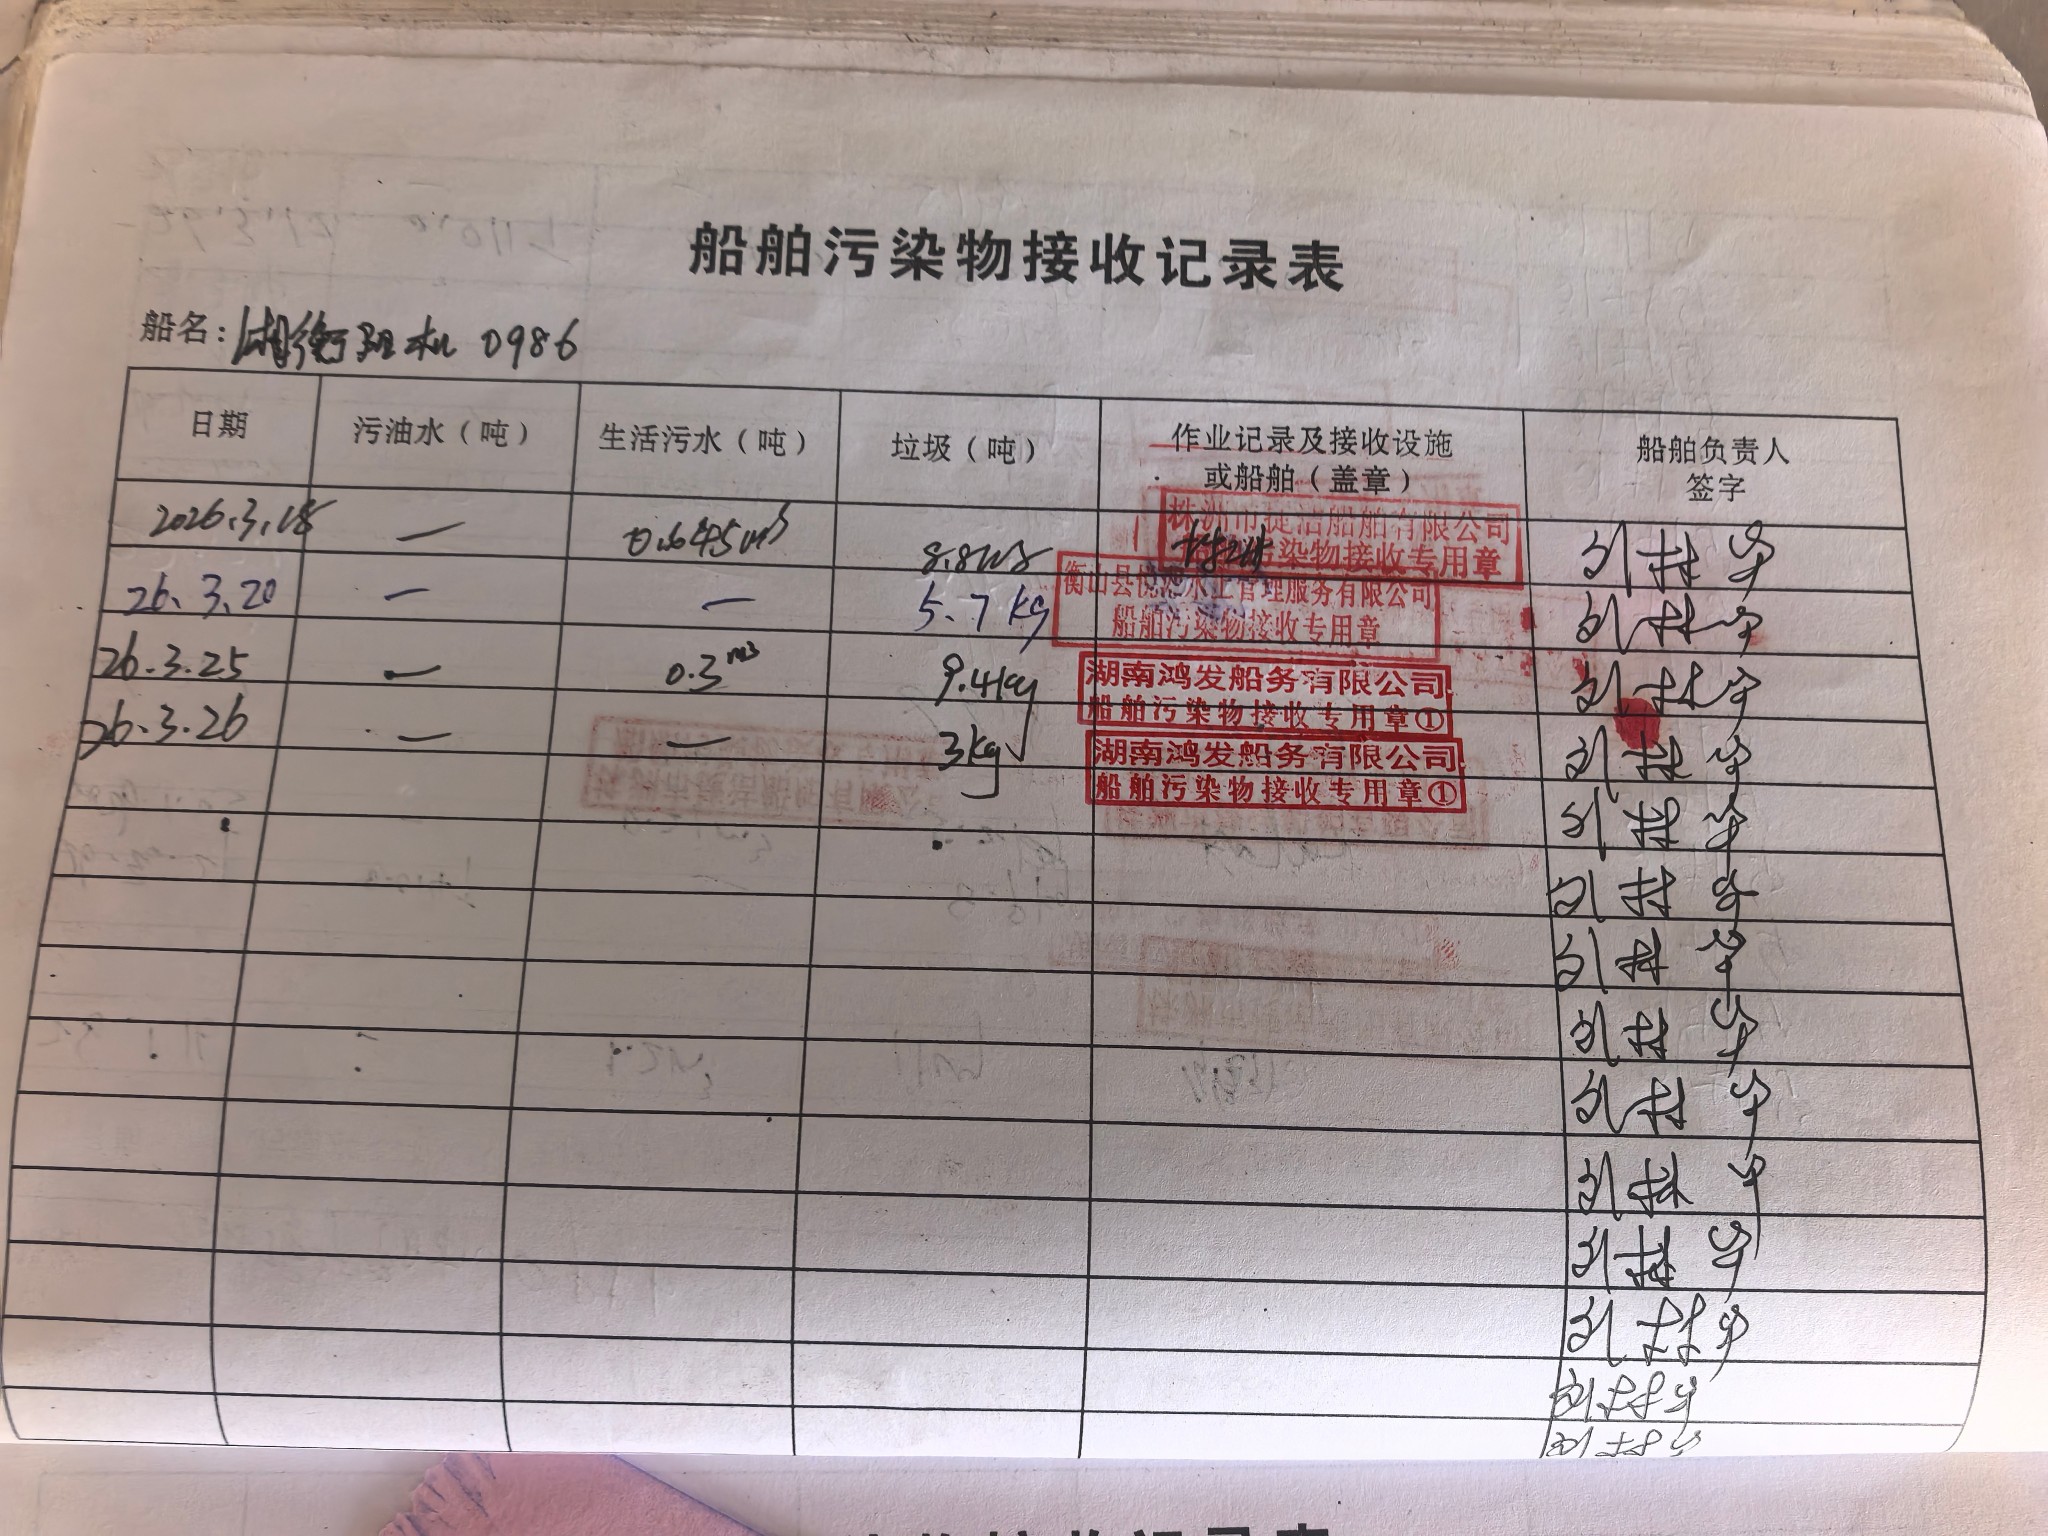 船舶污染物接收记录表
船名: 湘衡阳机 0986
日期 污油水（吨） 生活污水（吨） 垃圾（吨） 作业记录及接收设施或船舶（盖章） 船舶负责人签字
2026.3.18 — 0.645m3 8.8kg 株洲
株洲市捷洁船舶有限公司
染物接收专用章
刘林华
26.3.20 — — 5.7kg
衡山县 水上管理服务有限公司
船舶污染物接收专用章
刘林华
26.3.25 — 0.3m3 9.4kg
湖南鸿发船务有限公司
船舶污染物接收专用章①
刘林华
26.3.26 — — 3kg
湖南鸿发船务有限公司
船舶污染物接收专用章①
刘林华
刘林华
刘林华
刘林华
刘林华
刘林华
刘林华
刘林华
刘林华
刘林华